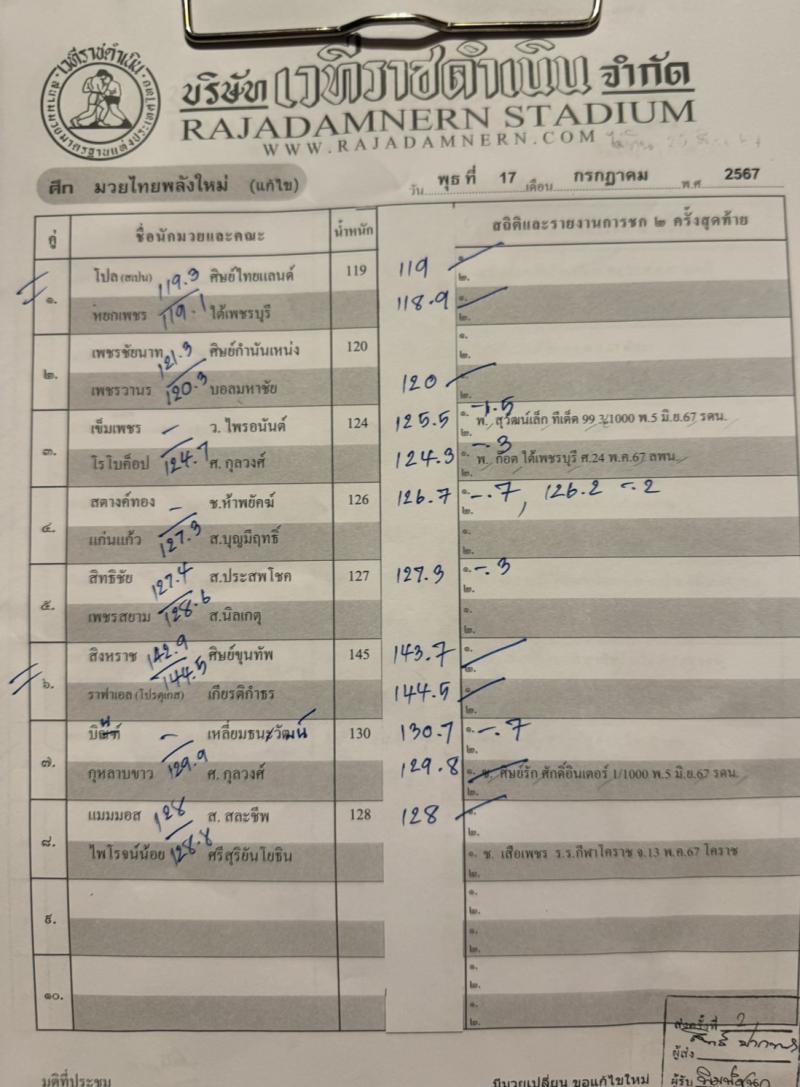 เวทีราชดำเนิน
บริษัท เวทีราชดำเนิน จำกัด
RAJADAMNERN STADIUM
WWW.RAJADAMNERN.COM
ศึก มวยไทยพลังใหม่ (แก้ไข) วัน พุธ ที่ 17 เดือน กรกฎาคม พ.ศ 2567
คู่ ชื่อนักมวยและคณะ น้ำหนัก สถิติและรายงานการชก ๒ ครั้งสุดท้าย
๑. โปล (สเปน) 119.3 ศิษย์ไทยแลนด์ 119 119 ๑.
๒.
หยกเพชร 119.1 ใต้เพชรบุรี 118.9 ๑.
๒.
๒. เพชรชัยนาท 121.3 ศิษย์กำนันเหน่ง 120 ๑.
๒.
เพชรวานร 120.3 บอลมหาชัย 120 ๑.
๒.
๓. เข็มเพชร - ว. ไพรอนันต์ 124 125.5 -1.5
๑. พ. สุวัฒน์เล็ก ทีเด็ด 99 3/1000 พ.5 มิ.ย.67 รดน.
๒.
โรโบค็อป 124.7 ศ. กุลวงศ์ 124.3 -.3
๑. พ. ก๊อต ใต้เพชรบุรี ศ.24 พ.ค.67 ลพน.
๒.
๔. สตางค์ทอง - ช.ห้าพยัคฆ์ 126 126.7 ๑. -.7, 126.2 -.2
๒.
แก่นแก้ว 127.3 ส.บุญมีฤทธิ์ ๑.
๒.
๕. สิทธิชัย 127.4 ส.ประสพโชค 127 127.3 ๑. -.3
๒.
เพชรสยาม 128.6 ส.นิลเกตุ ๑.
๒.
๖. สิงหราช 142.9 ศิษย์ขุนทัพ 145 143.7 ๑.
๒.
ราฟาเอล (โปรตุเกส) 144.5 เกียรติกำธร 144.5 ๑.
๒.
๗. - เหลี่ยมธนะวัฒน์ 130 130.7 ๑. -.7
๒.
กุหลาบขาว 129.9 ศ. กุลวงศ์ 129.8 ๑. ช. ศิษย์รัก ศักดิ์อินเตอร์ 1/1000 พ.5 มิ.ย.67 รดน.
๒.
๘. แมมมอส 128 ส. สละชีพ 128 128 ๑.
๒.
ไพโรจน์น้อย 128.8 ศรีสุริยันโยธิน ๑. ช. เสือเพชร ร.ร.กีฬาโคราช จ.13 พ.ค.67 โคราช
๒.
๙. ๑.
๒.
๑.
๒.
๑๐. ๑.
๒.
๑.
๒.
ส่งครั้งที่ 2
ผู้ส่ง
ผู้รับ
มติที่ประชุม มีมวยเปลี่ยน ขอแก้ไขใหม่